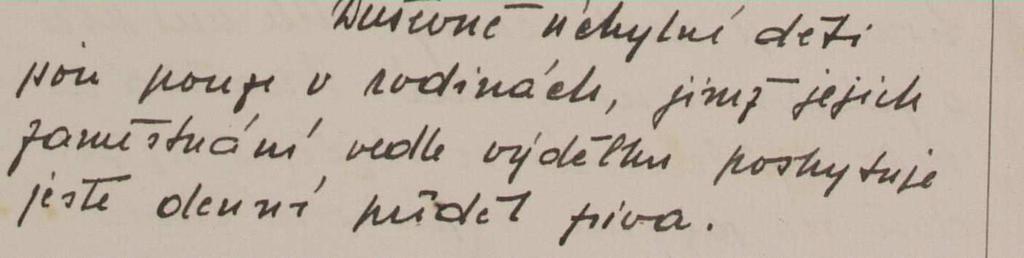 Duševně úchylné děti
jsou pouze v rodinách, jimž jejich
zaměstnání vedle výdělku poskytuje
ještě denní příděl piva.